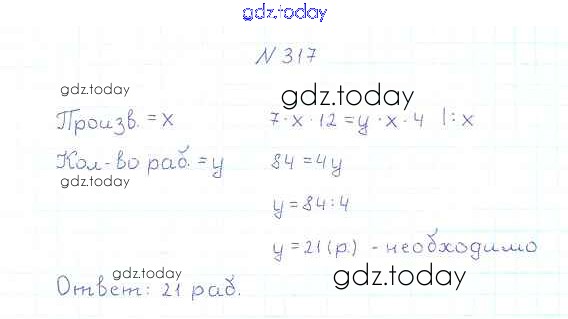 gdz.today
N 317
gdz.today
gdz.today
Произв. = x
7 · x · 12 = y · x · 4 |: x
Кол-во раб. = y
84 = 4y
gdz.today
y = 84 : 4
y = 21 (р.) - необходимо
gdz.today
gdz.today
Ответ: 21 раб.